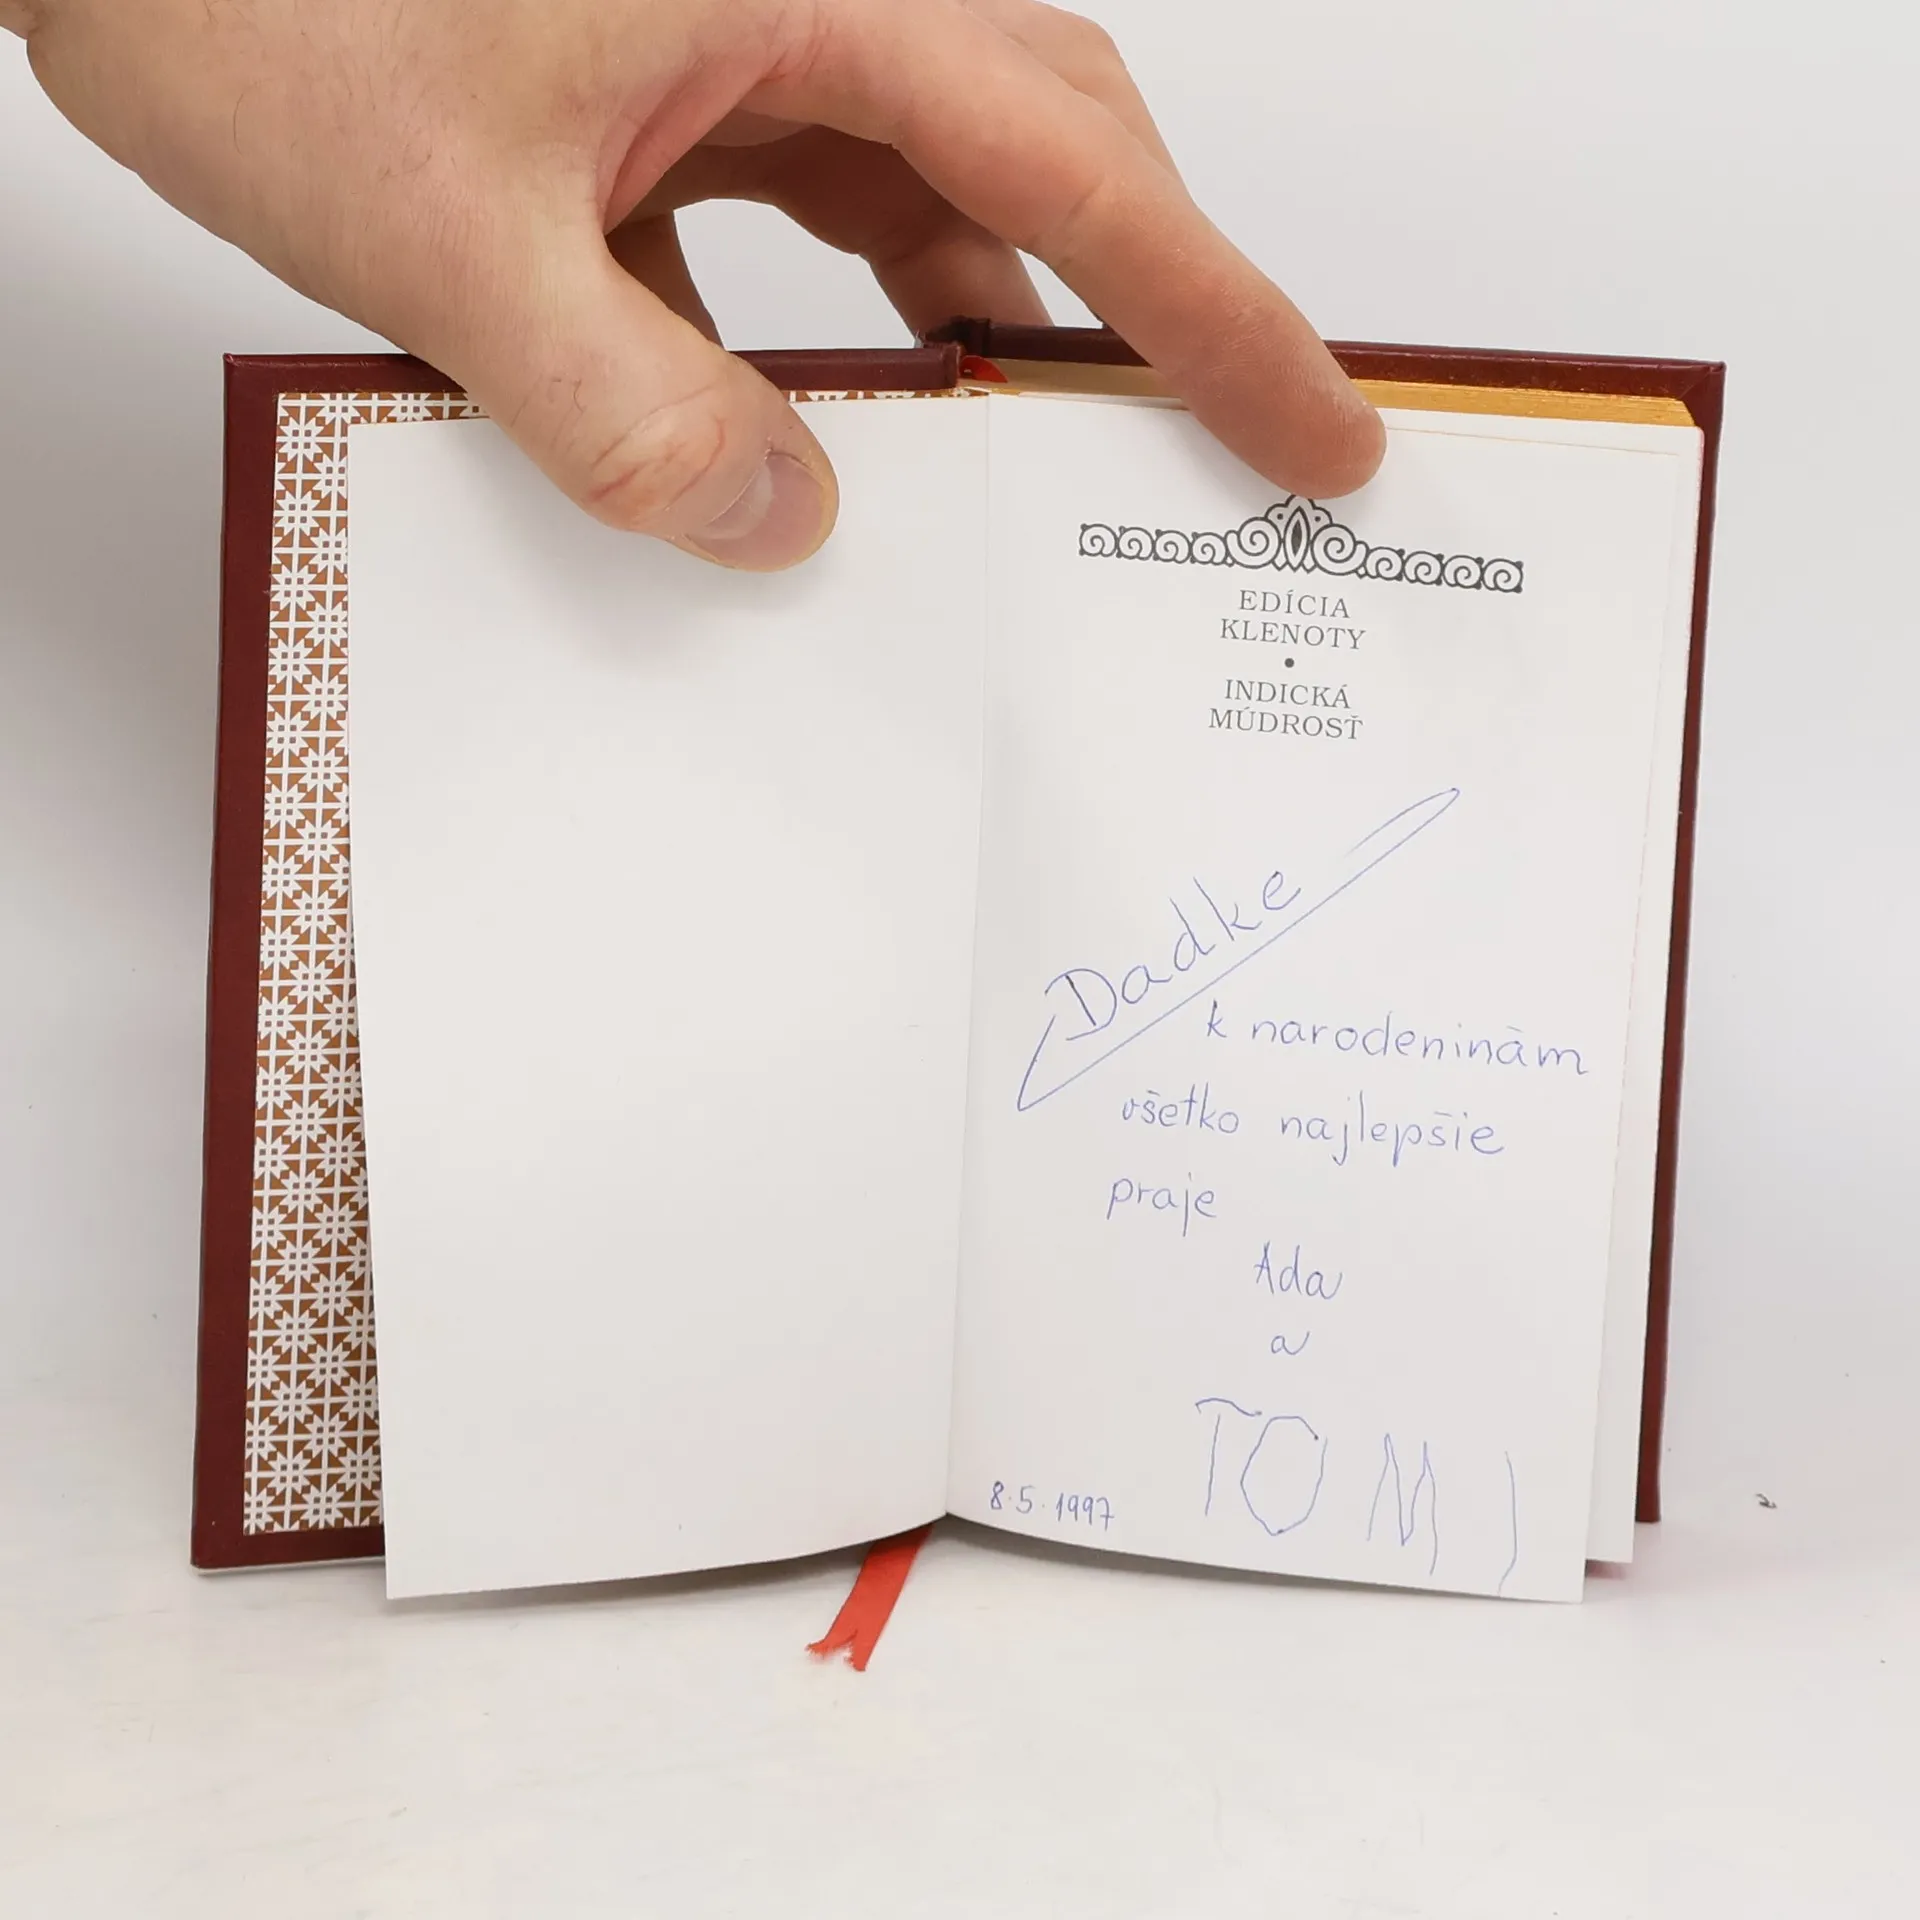 EDÍCIA
KLENOTY
•
INDICKÁ
MÚDROSŤ
Dadke
k narodeninám
všetko najlepšie
praje
Ada
a
TOMI
8.5.1997